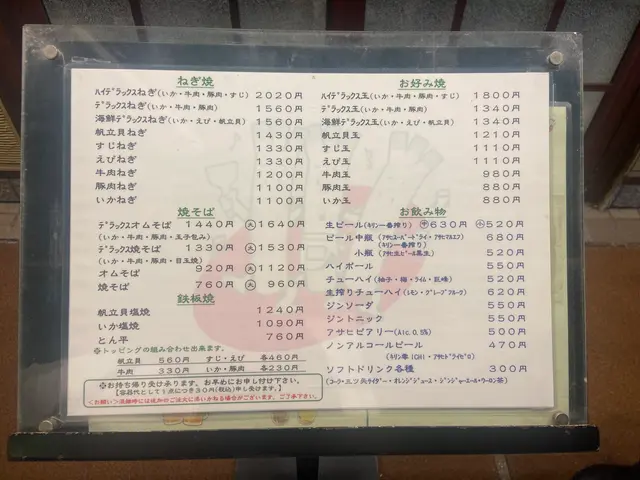 ねぎ焼
ハイデラックスねぎ(いか・牛肉・豚肉・すじ) 2020円
デラックスねぎ(いか・牛肉・豚肉) 1560円
海鮮デラックスねぎ(いか・えび・帆立貝) 1560円
帆立貝ねぎ 1430円
すじねぎ 1330円
えびねぎ 1330円
牛肉ねぎ 1200円
豚肉ねぎ 1100円
いかねぎ 1100円
焼そば
デラックスオムそば 1440円 大1640円
(いか・牛肉・豚肉・玉子包み)
デラックス焼そば 1330円 大1530円
(いか・牛肉・豚肉・目玉焼)
オムそば 920円 大1120円
焼そば 760円 大 960円
鉄板焼
帆立貝塩焼 1240円
いか塩焼 1090円
とん平 760円
※トッピングの組み合わせ出来ます。
帆立貝 560円 すじ・えび 各460円
牛肉 330円 いか・豚肉 各230円
※お持ち帰り受け承ります。お早めにお申し付け下さい。
【容器代として1点につき30円(税込)申し受けます。】
<お願い>混雑時には追加のご注文に添いかねる場合がございます。ご了承下さい。
お好み焼
ハイデラックス玉(いか・牛肉・豚肉・すじ) 1800円
デラックス玉(いか・牛肉・豚肉) 1340円
海鮮デラックス玉(いか・えび・帆立貝) 1340円
帆立貝玉 1210円
すじ玉 1110円
えび玉 1110円
牛肉玉 980円
豚肉玉 880円
いか玉 880円
お飲み物
生ビール(キリン一番搾り) 中630円 小520円
ビール中瓶(アサヒスーパードライ・アサヒマルエフ) 680円
(キリン一番搾り)
小瓶(アサヒ生ビール黒生) 520円
ハイボール 550円
チューハイ(柚子・梅・ライム・巨峰) 520円
生搾りチューハイ(レモン・グレープフルーツ) 620円
ジンソーダ 550円
ジントニック 550円
アサヒビアリー(Alc.0.5%) 500円
ノンアルコールビール 470円
(キリン零ICHI・アサヒドライゼロ)
ソフトドリンク各種 300円
(コーラ・三ツ矢サイダー・オレンジジュース・ジンジャーエール・ウーロン茶)